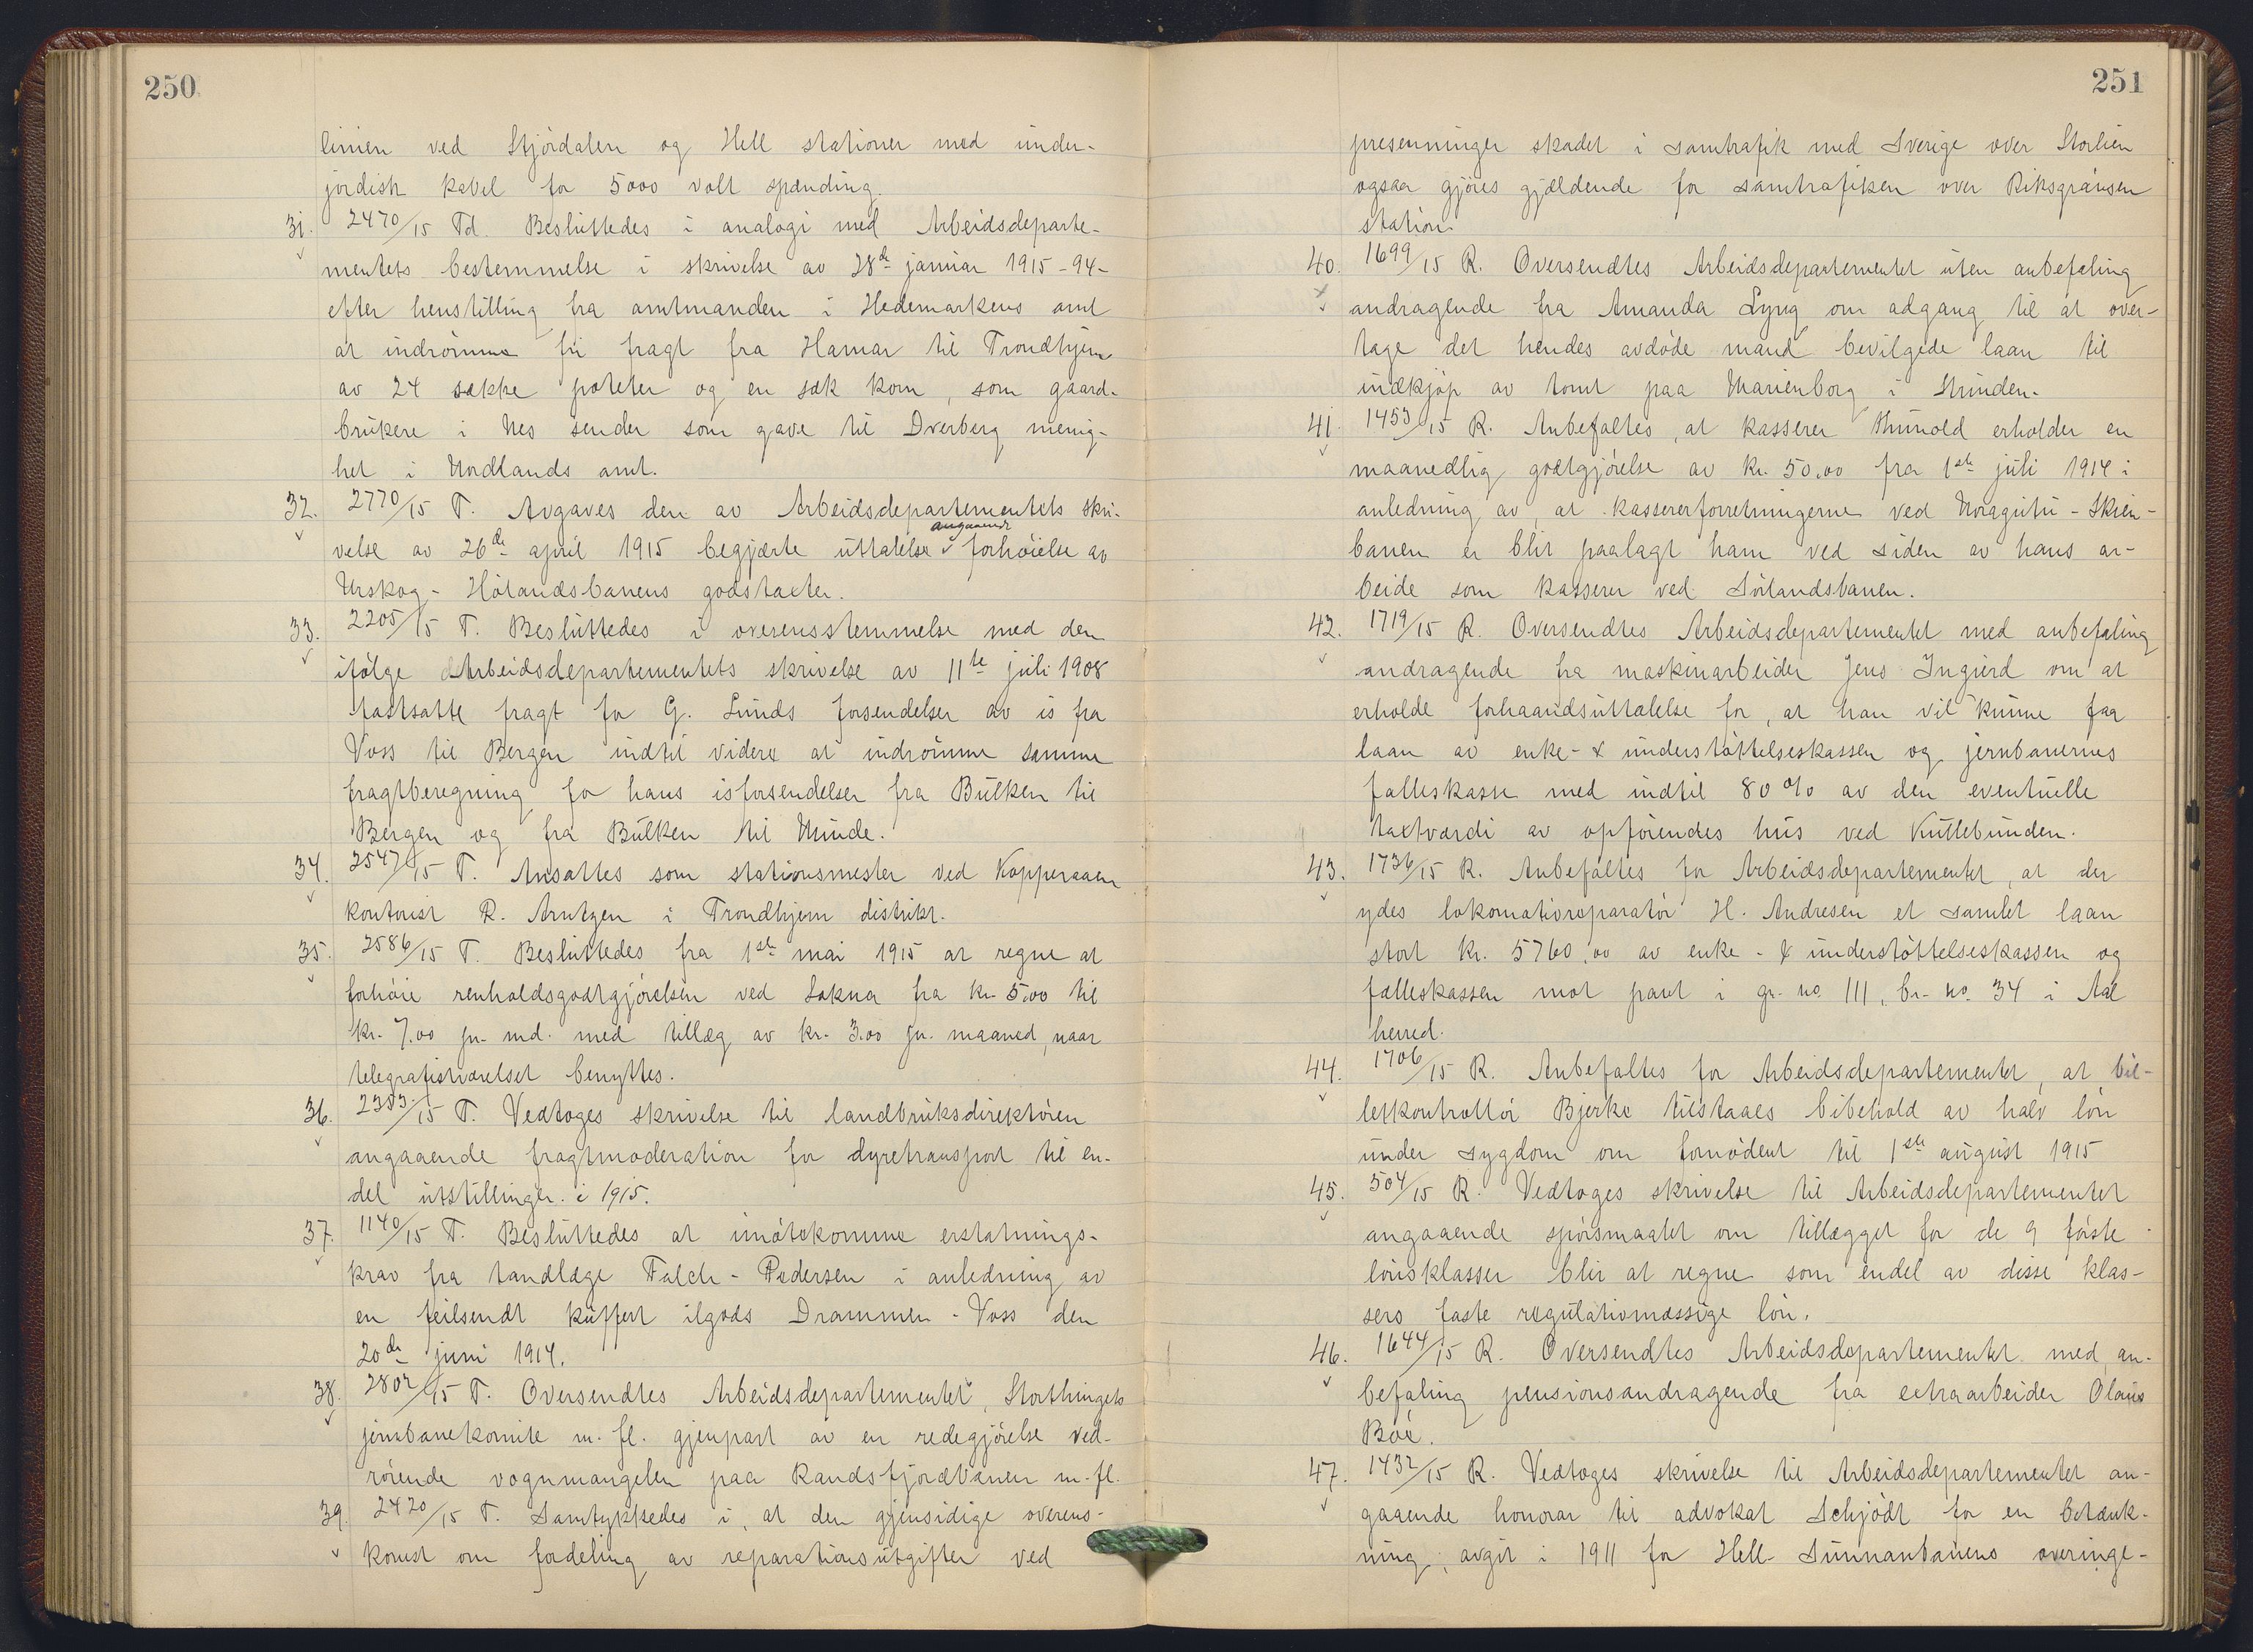 250
linien ved Stjördalen og Hell stationer med under-
jordisk kabel for 5000 volt spænding.
31. 2470/15 Td. Besluttedes i analogi med Arbeidsdeparte-
mentets bestemmelse i skrivelse av 28de januar 1915 - 94 -
efter henstilling fra amtmanden i Hedemarkens amt
at indrömme fri fragt fra Hamar til Trondhjem
av 24 sække poteter og en sæk korn, som gaard-
brukere i Nes sender som gave til Dverberg menig-
het i Nordlands amt.
32. 2770/15 T. Avgaves den av Arbeidsdepartementets skri-
velse av 26de april 1915 begjærte uttalelse angaaende forhöielse av
Urskog - Hölandsbanens godstakster.
33. 2205/15 T. Besluttedes i overensstemmelse med den
ifölge Arbeidsdepartementets skrivelse av 11te juli 1908
fastsatte fragt for G. Lunds forsendelser av is fra
Voss til Bergen indtil videre at indrömme samme
fragtberegning for hans isforsendelser fra Bulken til
Bergen og fra Bulken til Minde.
34. 2547/15 T. Ansattes som stationsmester ved Kopperaaen
kontorist R. Arntzen i Trondhjem distrikt.
35. 2586/15 T. Besluttedes fra 1ste mai 1915 at regne at
forhöie renholdsgodtgjörelsen ved Lokna fra kr. 5,00 til
kr. 7.00 pr. md. med tillæg av kr. 3.00 pr. maaned, naar
telegrafistværelset benyttes.
36. 2353/15 T. Vedtoges skrivelse til landbruksdirektören
angaaende fragtmoderation for dyretransport til en-
del utstillinger i 1915.
37. 1140/15 T. Besluttedes at imötekomme erstatnings-
krav fra tandlæge Falch - Pedersen i anledning av
en feilsendt kuffert ilgods Drammen - Voss den
20de juni 1914.
38. 2802/15 T. Oversendtes Arbeidsdepartementet, Storthingets
jernbanekomite m. fl. gjenpart av en redegjörelse ved-
rörende vognmangelen paa Randsfjordbanen m. fl.
39. 2420/15 T. Samtykkedes i, at den gjensidige overens-
komst om fordeling av reparationsutgifter ved
251
presenninger skadet i samtrafik med Sverige over Storlien
ogsaa gjöres gjældende for samtrafiken over Riksgränsen
station.
40. 1699/15 R. Oversendtes Arbeidsdepartementet uten anbefaling
andragende fra Amanda Lyng om adgang til at over-
tage det hendes avdöde mand bevilgede laan til
indkjöp av tomt paa Marienborg i Strinden.
41. 1453/15 R. Anbefaltes, at kasserer Thunold erholder en
maanedlig godtgjörelse av kr. 50.00 fra 1ste juli 1914 i
anledning av, at kassererforretningerne ved Noragutu - Skien -
banen er blit paalagt ham ved siden av hans ar-
beide som kasserer ved Sörlandsbanen.
42. 1719/15 R. Oversendtes Arbeidsdepartementet med anbefaling
andragende fra maskinarbeider Jens Ingierd om at
erholde forhaandsuttalelse for, at han vil kunne faa
laan av enke- & understöttelseskassen og jernbanernes
fælleskasse med indtil 80 % av den eventuelle
takstværdi av opförendes hus ved Kuttebunden.
43. 1736/15 R. Anbefaltes for Arbeidsdepartementet, at der
ydes lokomotivreparatör H. Andresen et samlet laan
stort kr. 5760,00 av enke- & understöttelseskassen og
fælleskassen mot pant i gr. no. 111, br. no. 34 i Aal
herred.
44. 1706/15 R. Anbefaltes for Arbeidsdepartementet, at bil-
letkontrollör Bjerke tilstaaes bibehold av halv lön
under sygdom om fornödent til 1ste august 1915
45. 504/15 R. Vedtoges skrivelse til Arbeidsdepartementet
angaaende spörsmaalet om tillægget for de 9 förste
lönsklasser blir at regne som endel av disse klas-
sers faste regulativmæssige lön.
46. 1644/15 R. Oversendtes Arbeidsdepartementet med an-
befaling pensionsandragende fra extraarbeider Olaus
Böe.
47. 1432/15 R. Vedtoges skrivelse til Arbeidsdepartementet an-
gaaende honorar til advokat Schjödt for en betænk-
ning, avgit i 1911 for Hell - Sunnanbanens overinge-